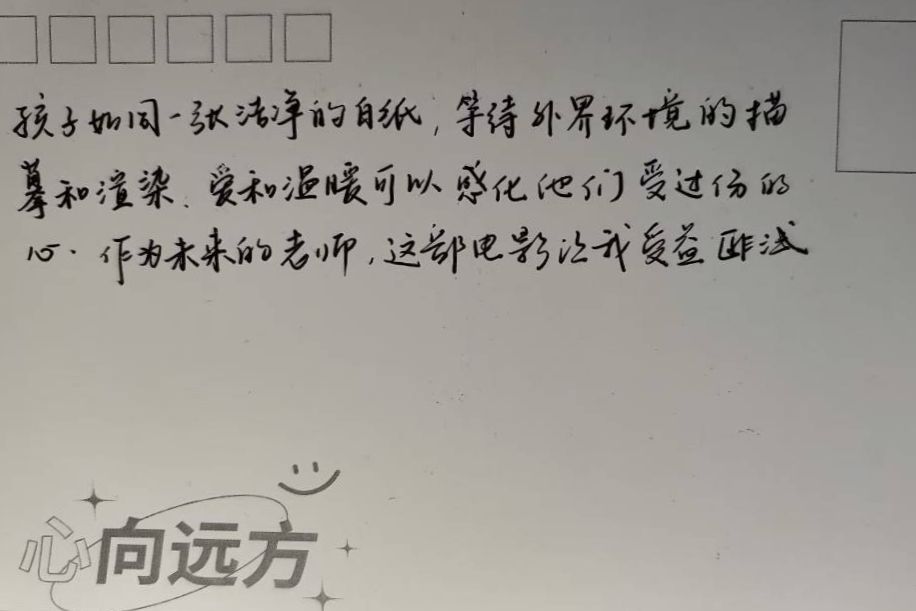 孩子如同一张洁净的白纸，等待外界环境的描
摹和渲染．爱和温暖可以感化他们受过伤的
心．作为未来的老师，这部电影让我受益匪浅
心向远方